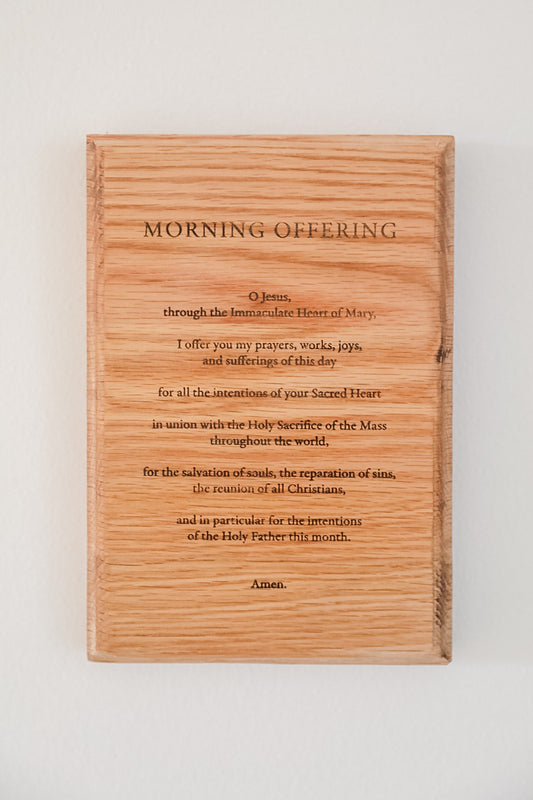 MORNING OFFERING
O Jesus,
through the Immaculate Heart of Mary,
I offer you my prayers, works, joys,
and sufferings of this day
for all the intentions of your Sacred Heart
in union with the Holy Sacrifice of the Mass
throughout the world,
for the salvation of souls, the reparation of sins,
the reunion of all Christians,
and in particular for the intentions
of the Holy Father this month.
Amen.